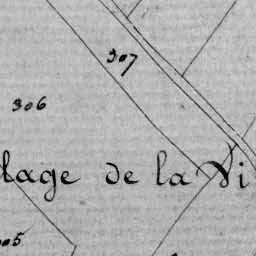 307
306
lage de la Vi
05